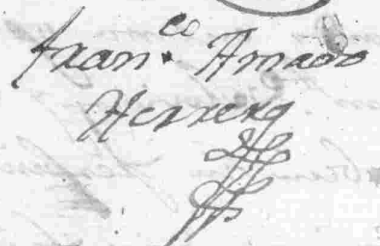 Fran.co Amado
Herrera